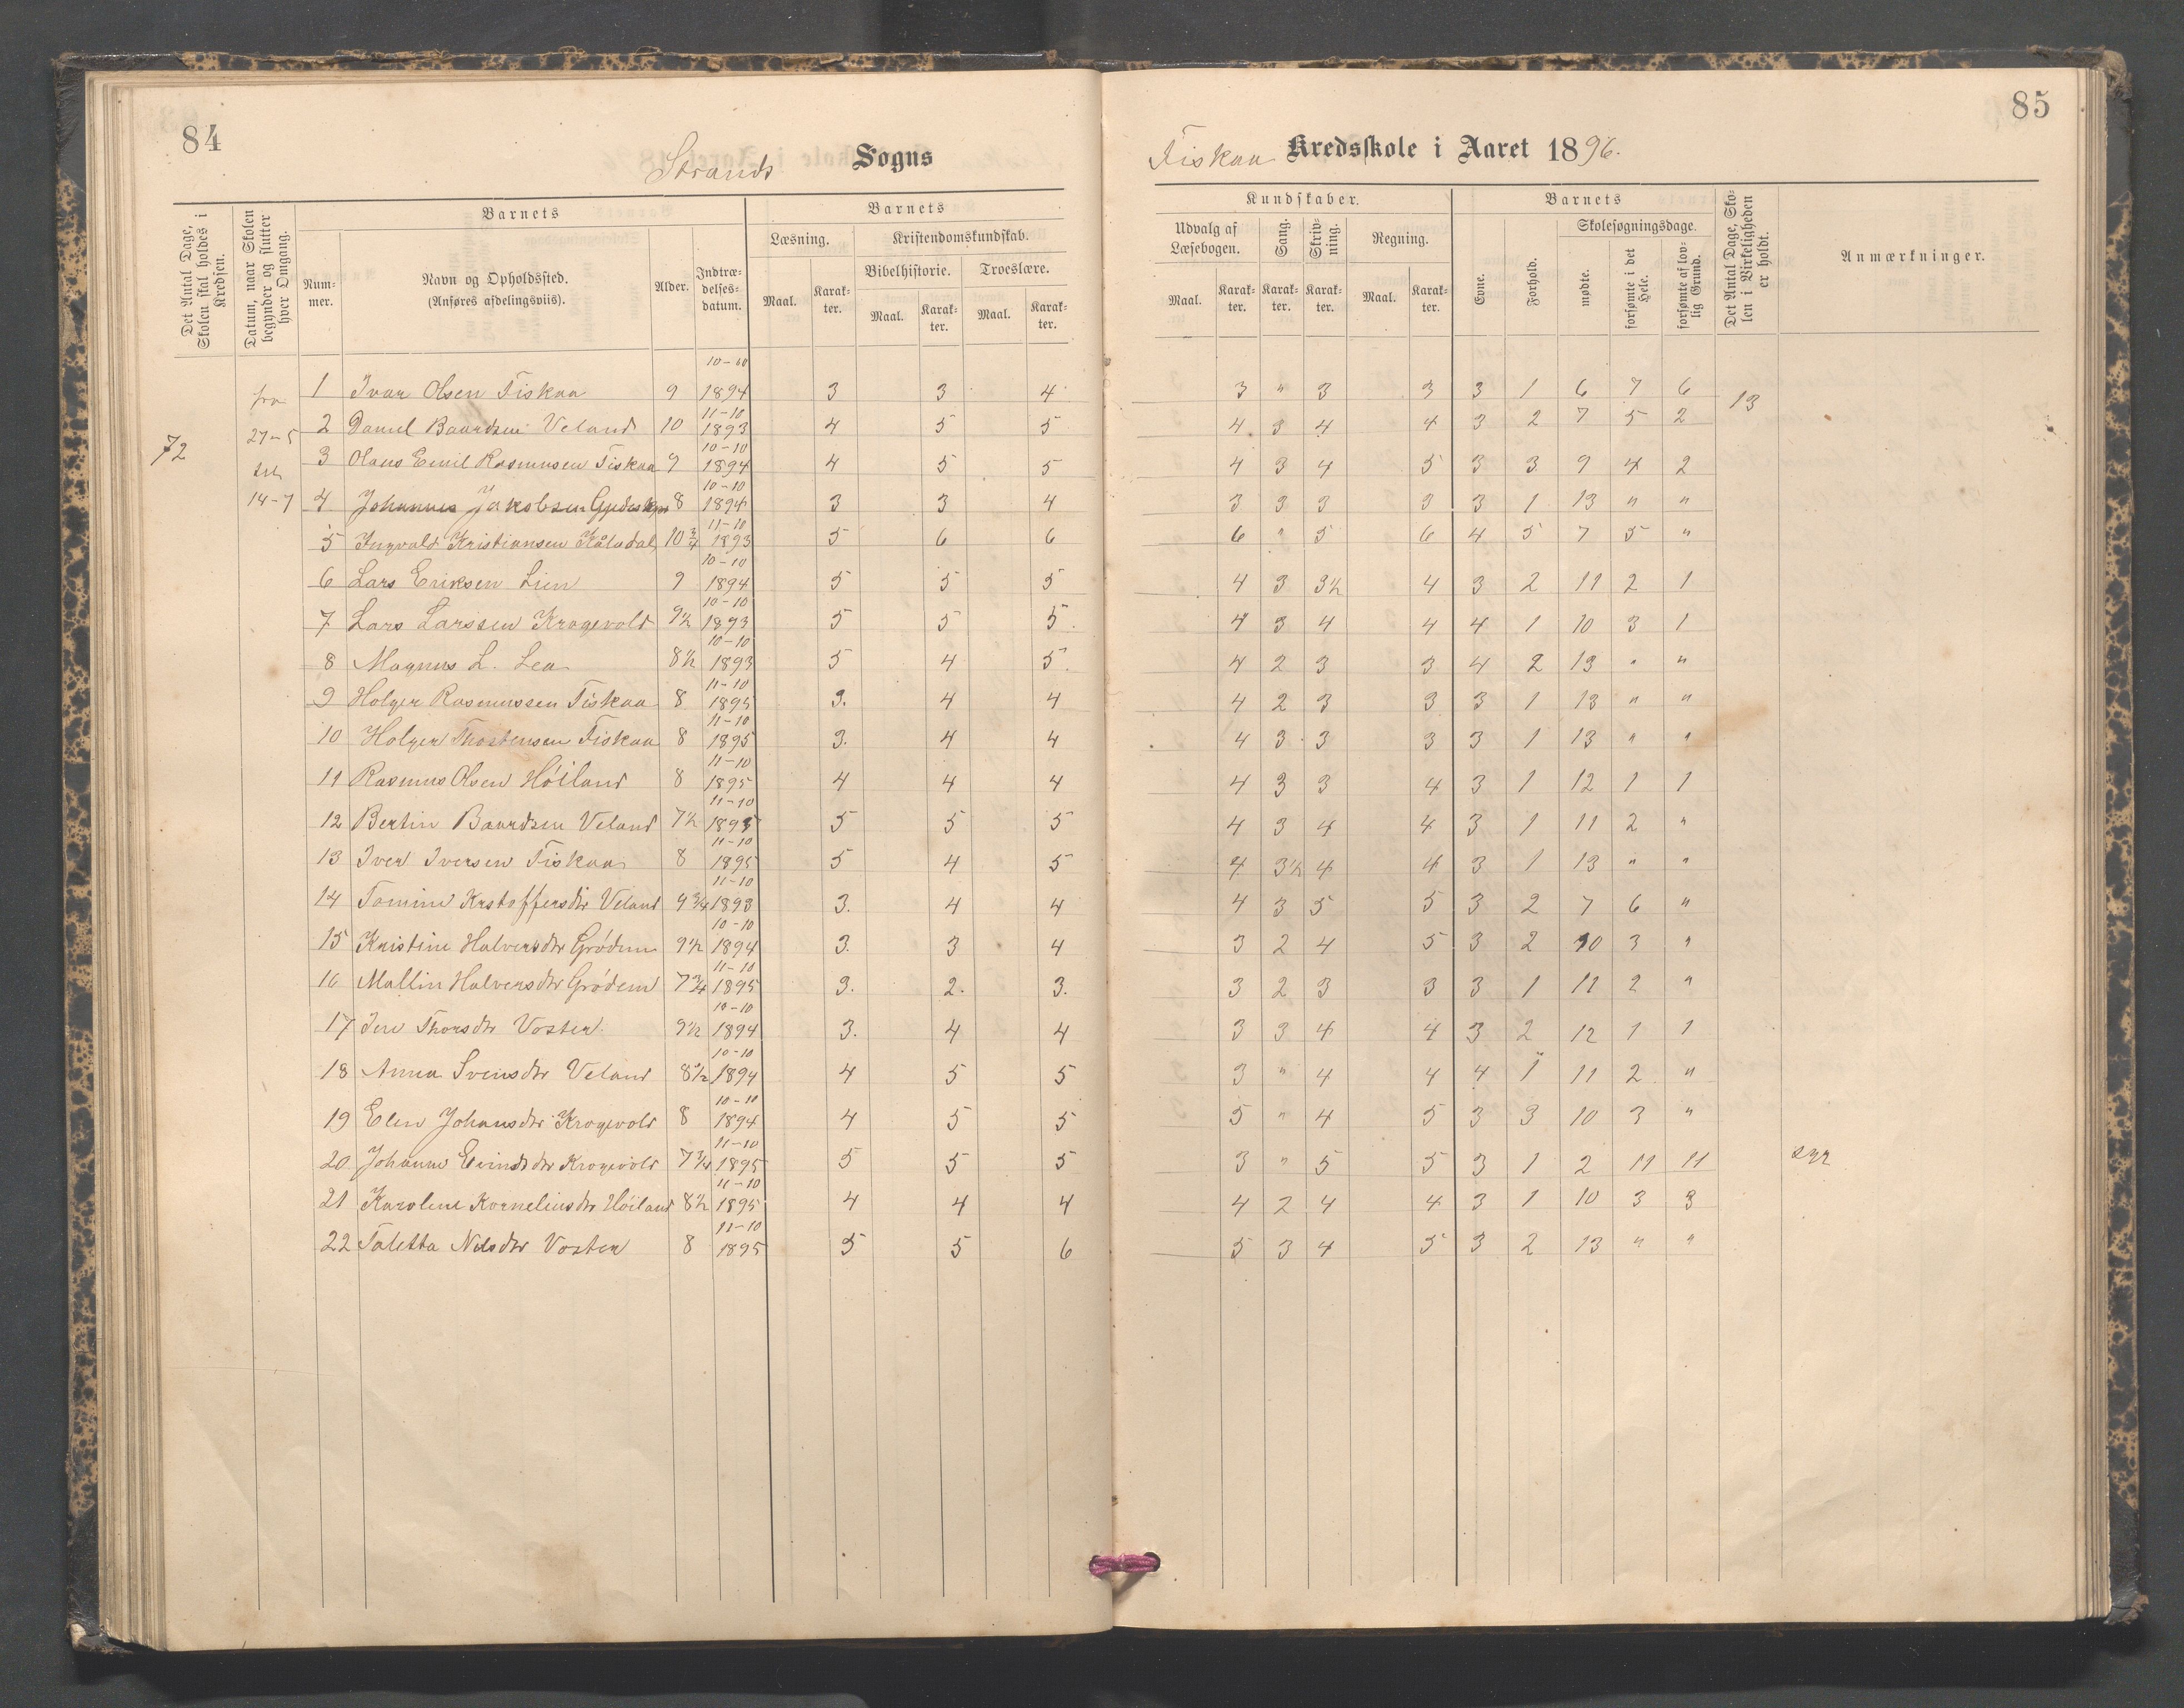 84
Strands Sogns
Det Antal Dage, Skolen skal holdes i Kredsen.
Datum, naar Skolen begynder og slutter hver Omgang.
Barnets
Num-mer.
Navn og Opholdssted.
(Anføres afdelingsviis).
Alder.
Indtræ-delses-datum.
Barnets
Læsning.
Kristendomskundskab.
Bibelhistorie.
Troeslære.
Maal. Karak-ter. Maal. Karak-ter. Maal. Karak-ter.
72
fra
27-5
til
14-7
1 Ivar Olsen Fiskaa 9 10-10 1894 3 3 4
2 Daniel Baardsen Veland 10 11-10 1893 4 5 5
3 Olaus Emil Rasmusen Fiskaa 9 10-10 1894 4 5 5
4 Johannes Jakobsen 8 10-10 1894 3 3 4
5 Ingvald Kristiansen Kåladal 10 3/4 11-10 1893 5 6 6
6 Lars Eriksen Lien 9 10-10 1894 5 5 5
7 Lars Larssen Krogevold 9½ 10-10 1893 5 5 5.
8 Magnus L. Lea 8½ 10-10 1893 5 4 5.
9 Holger Rasmussen Fiskaa 8 11-10 1895 3. 4 4
10 Holger Thostensen Fiskaa 8 11-10 1895 3. 4 4
11 Rasmus Olsen Höiland 8 11-10 1895 4 4 4
12 Bertin Baardsen Veland 7½ 11-10 1895 5 5 5
13 Iver Iversen Fiskaa 8 11-10 1895 5 4 5
14 Tomine Krstoffersdtr Veland 9 3/4 11-10 1893 3. 4 4
15 Kristine Halversdtr Grödem 9½ 10-10 1894 3. 3 4
16 Mallin Halversdtr Grödem 7 3/4 11-10 1895 3. 2. 3.
17 Ine Thorsdtr Voster 9½ 10-10 1894 3. 4 4
18 Anna Svensdtr Veland 8½ 10-10 1894 4 5 5
19 Elen Johansdtr Krogevold 8 10-10 1894 4 5 5
20 Johanne Evindsdtr Krogevold 7 3/4 11-10 1895 5 5 5
21 Karolene Korneliusdtr Höiland 8½ 11-10 1895 4 4 4
22 Taletta Nilsdtr Voster 8 11-10 1895 5 5 6
85
Fiskaa Kredsskole i Aaret 1896.
Kundskaber.
Udvalg af Læsebogen.
Sang.
Skriv-ning.
Regning.
Maal. Karak-ter. Karak-ter. Karak-ter. Maal. Karak-ter.
Barnets
Evne.
Forhold.
Skolesøgningsdage.
mødte.
forsømte i det Hele.
forsømte af lov-lig Grund.
Det Antal Dage, Sko-len i Virkeligheden er holdt.
Anmærkninger.
3 " 3 3 3 1 6 7 6 13
4 3 4 4 3 2 7 5 2
4 3 4 5 3 3 9 4 2
3 3 3 3 3 1 13 " "
6 " 5 6 4 5 7 5 "
4 3 3½ 4 3 2 11 2 1
4 3 4 4 4 1 10 3 1
4 2 3 3 4 2 13 " "
4 2 3 3 3 1 13 " "
4 3 3 3 3 1 13 " "
4 3 3 4 3 1 12 1 1
4 3 4 4 3 1 11 2 "
4 3½ 4 4 3 1 13 " "
4 3 5 5 3 2 7 6 "
3 2 4 5 3 2 10 3 "
3 2 3 3 3 1 11 2 "
3 3 4 4 3 2 12 1 1
3 " 4 4 4 1 11 2 "
5 " 4 5 3 3 10 3 "
3 " 5 5 3 1 2 11 11 syg
4 2 4 4 3 1 10 3 3
5 3 4 5 3 2 13 " "